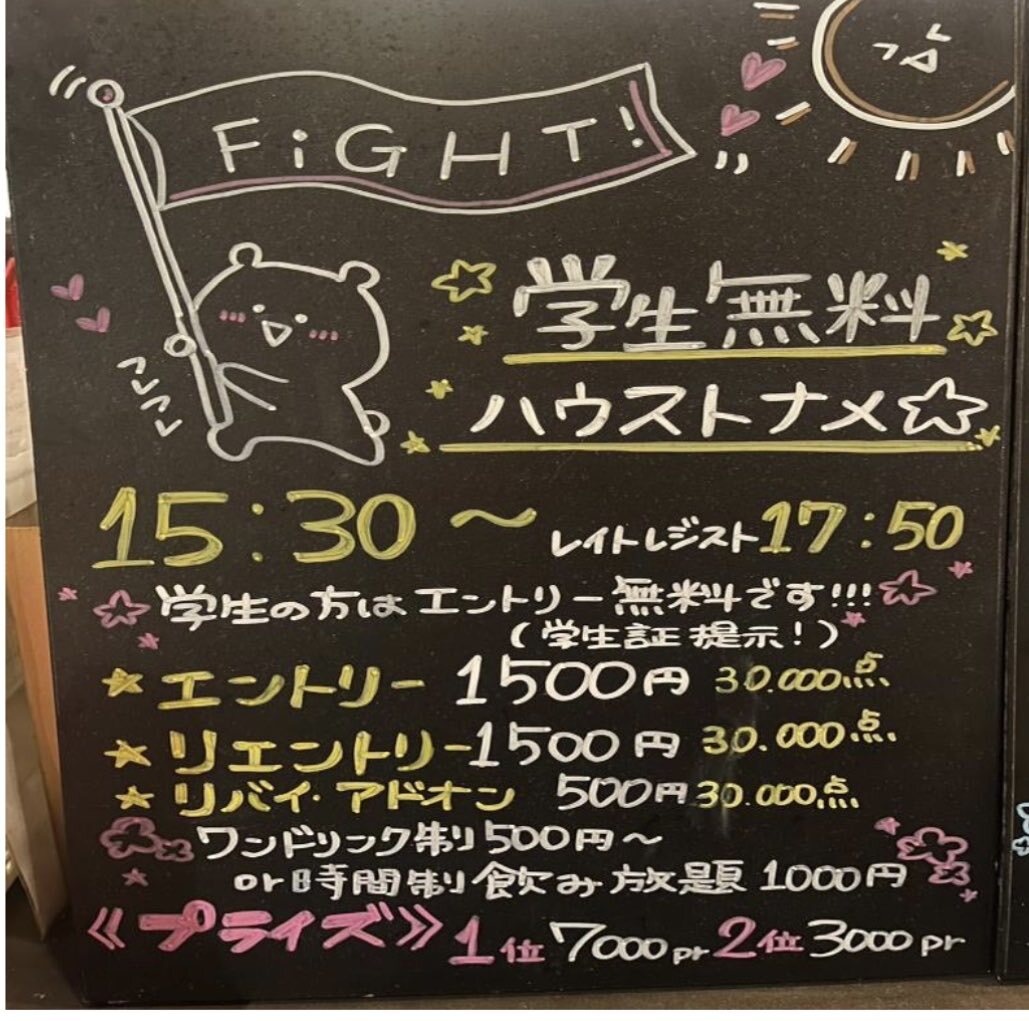 FiGHT!
学生無料
ハウストナメ☆
15:30〜 レイトレジスト17:50
☆学生の方はエントリー無料です!!!☆
(学生証提示!)
★エントリー 1500円 30.000点
★リエントリー1500円 30.000点
★リバイ・アドオン 500円30.000点
ワンドリンク制500円〜
or時間制飲み放題1000円
《プライズ》1位7000pr 2位3000pr